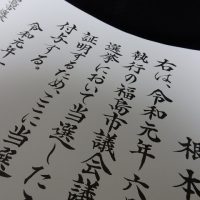 根本
右は、令和元年六
執行の福島市議会議
選挙において当選した
証明するため、ここに当選
付与する。
令和元年